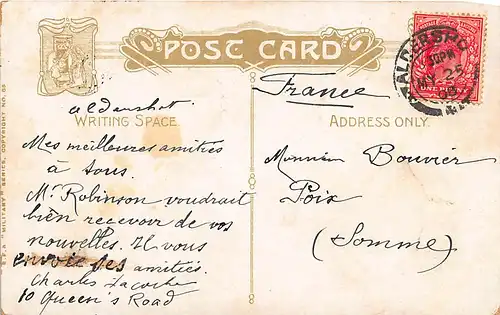 POST CARD
WRITING SPACE
ADDRESS ONLY.
Aldershot
Mes meilleures amitiés
à tous.
Mr Robinson voudrait
bien recevoir de vos
nouvelles. Il vous
envoie ses amitiés.
Charles
10 Queen's Road
France
Monsieur Bouvier
Poix
(Somme)
ALDERSHOT
MY 25
ONE PENNY